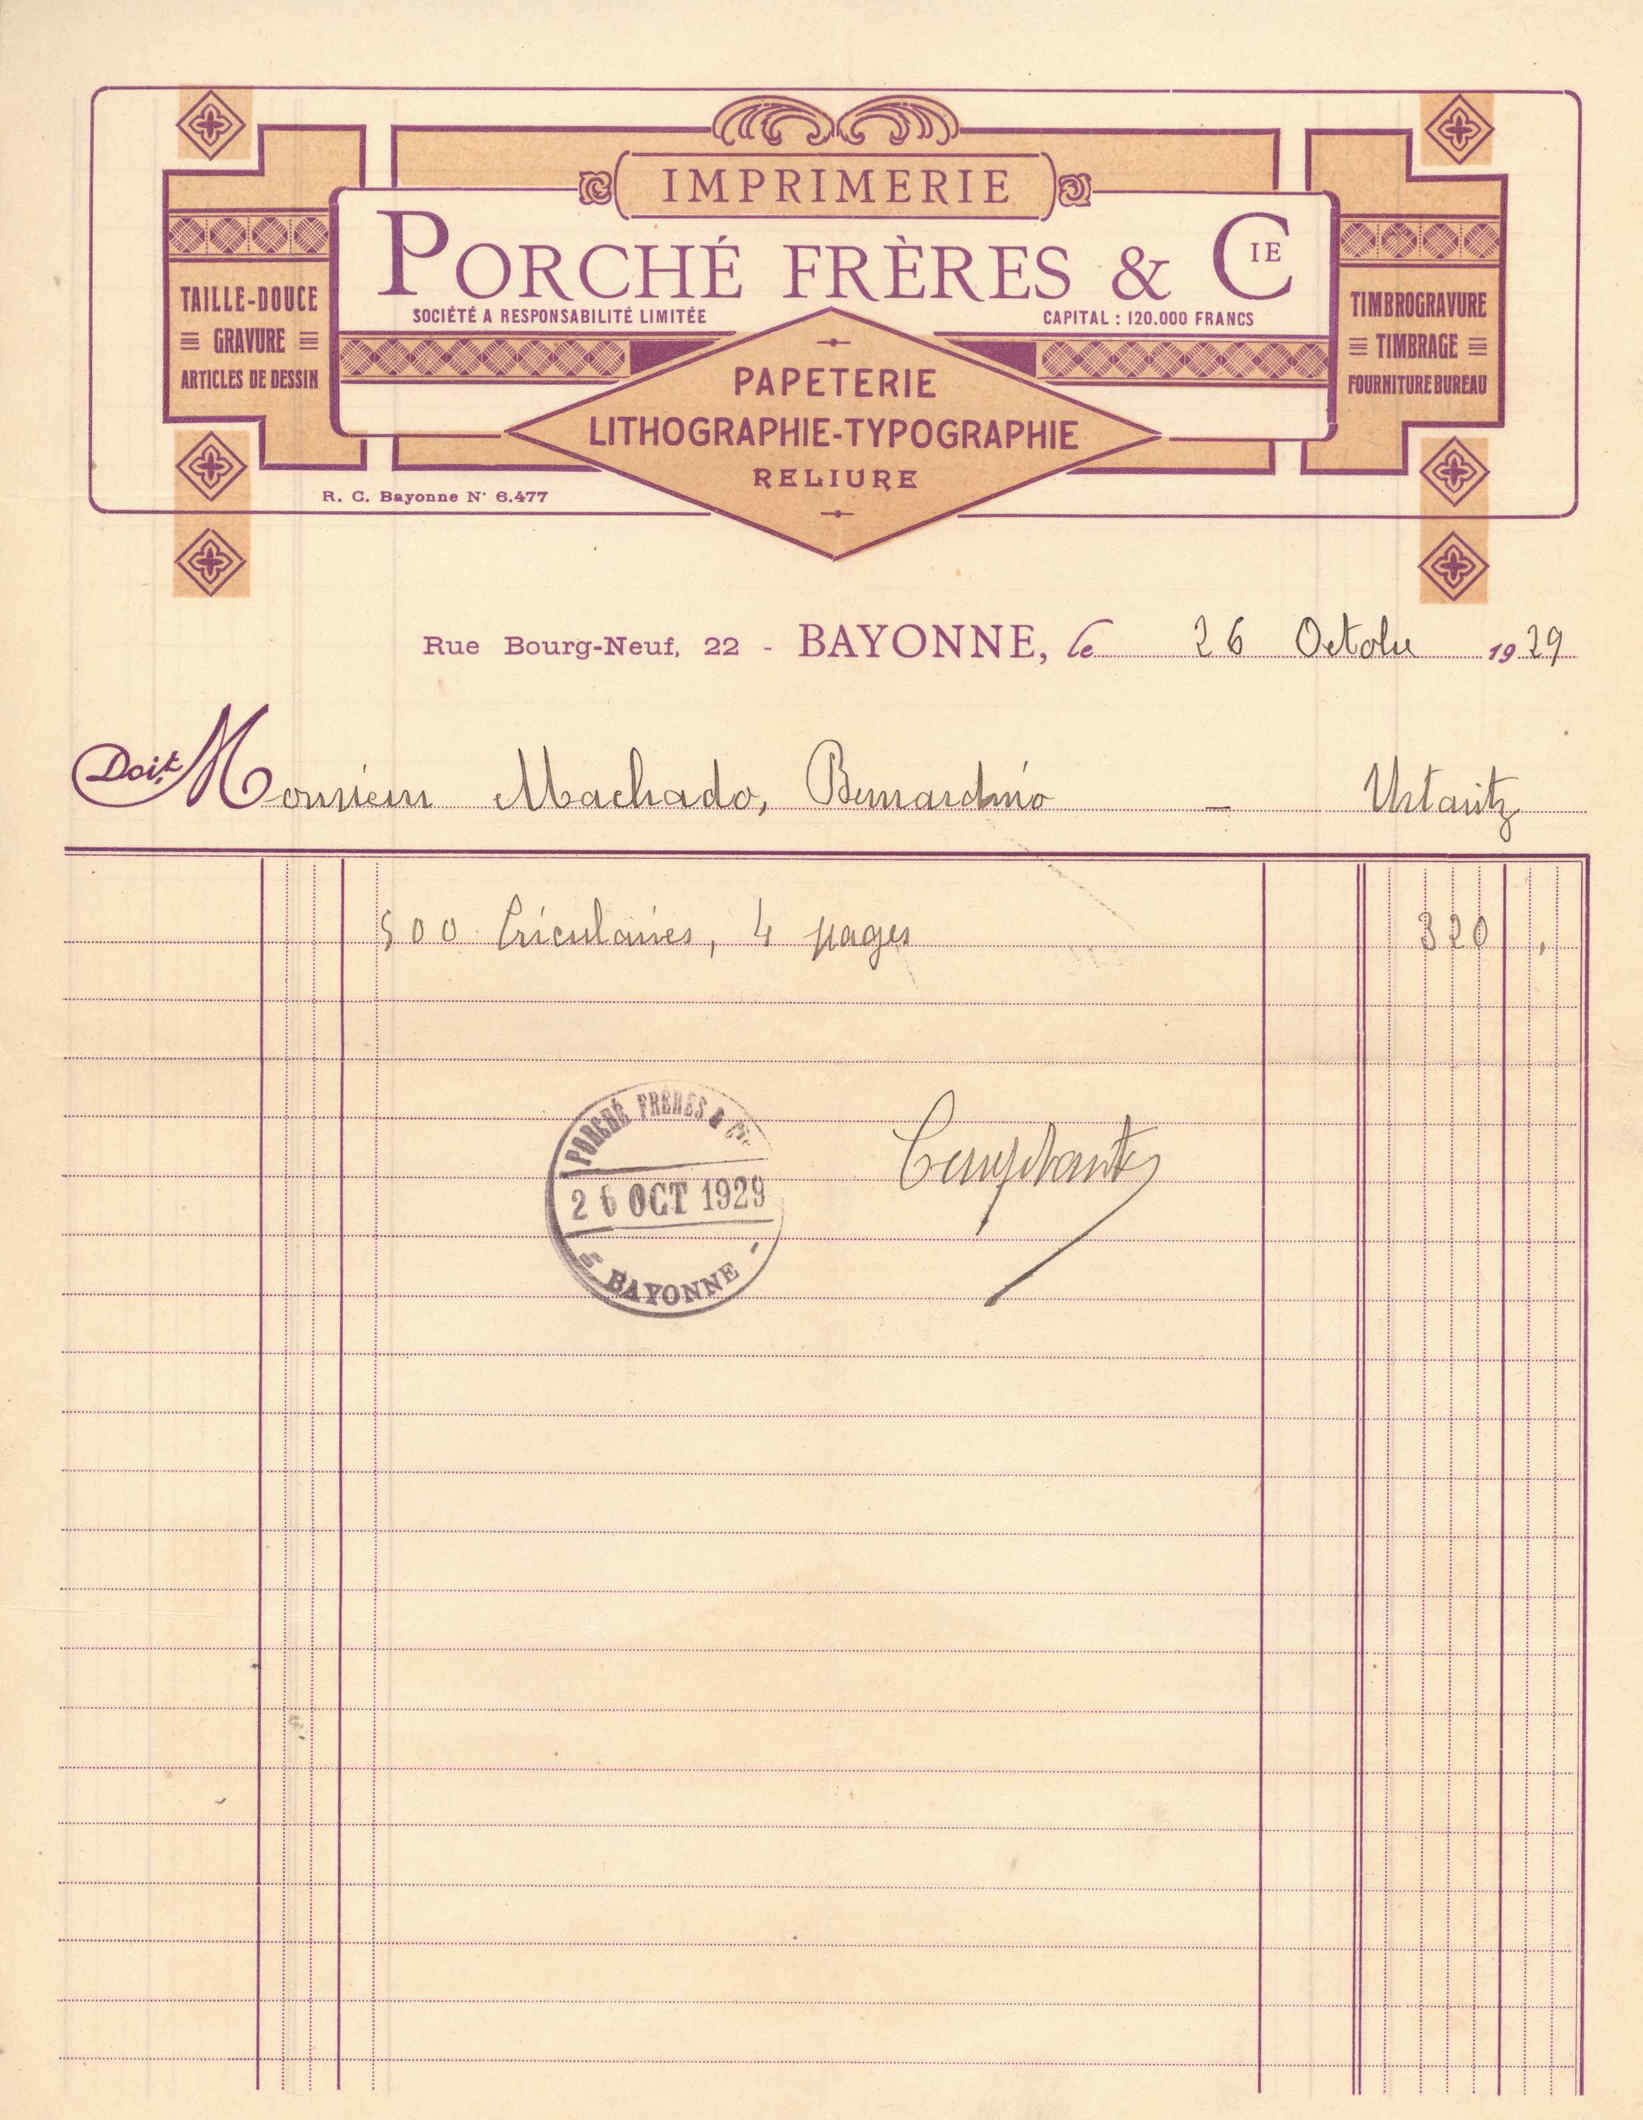 IMPRIMERIE
PORCHÉ FRÈRES & CIE
SOCIÉTÉ A RESPONSABILITÉ LIMITÉE
CAPITAL : 120.000 FRANCS
TAILLE-DOUCE
GRAVURE
ARTICLES DE DESSIN
TIMBROGRAVURE
TIMBRAGE
FOURNITURE BUREAU
PAPETERIE
LITHOGRAPHIE-TYPOGRAPHIE
RELIURE
R. C. Bayonne N° 6.477
Rue Bourg-Neuf, 22 - BAYONNE, le 26 Octobre 1929
Doit Monsieur Machado, Bernardino - Ustaritz
500 Circulaires, 4 pages 320 ,
PORCHÉ FRÈRES & Cie
26 OCT 1929
BAYONNE